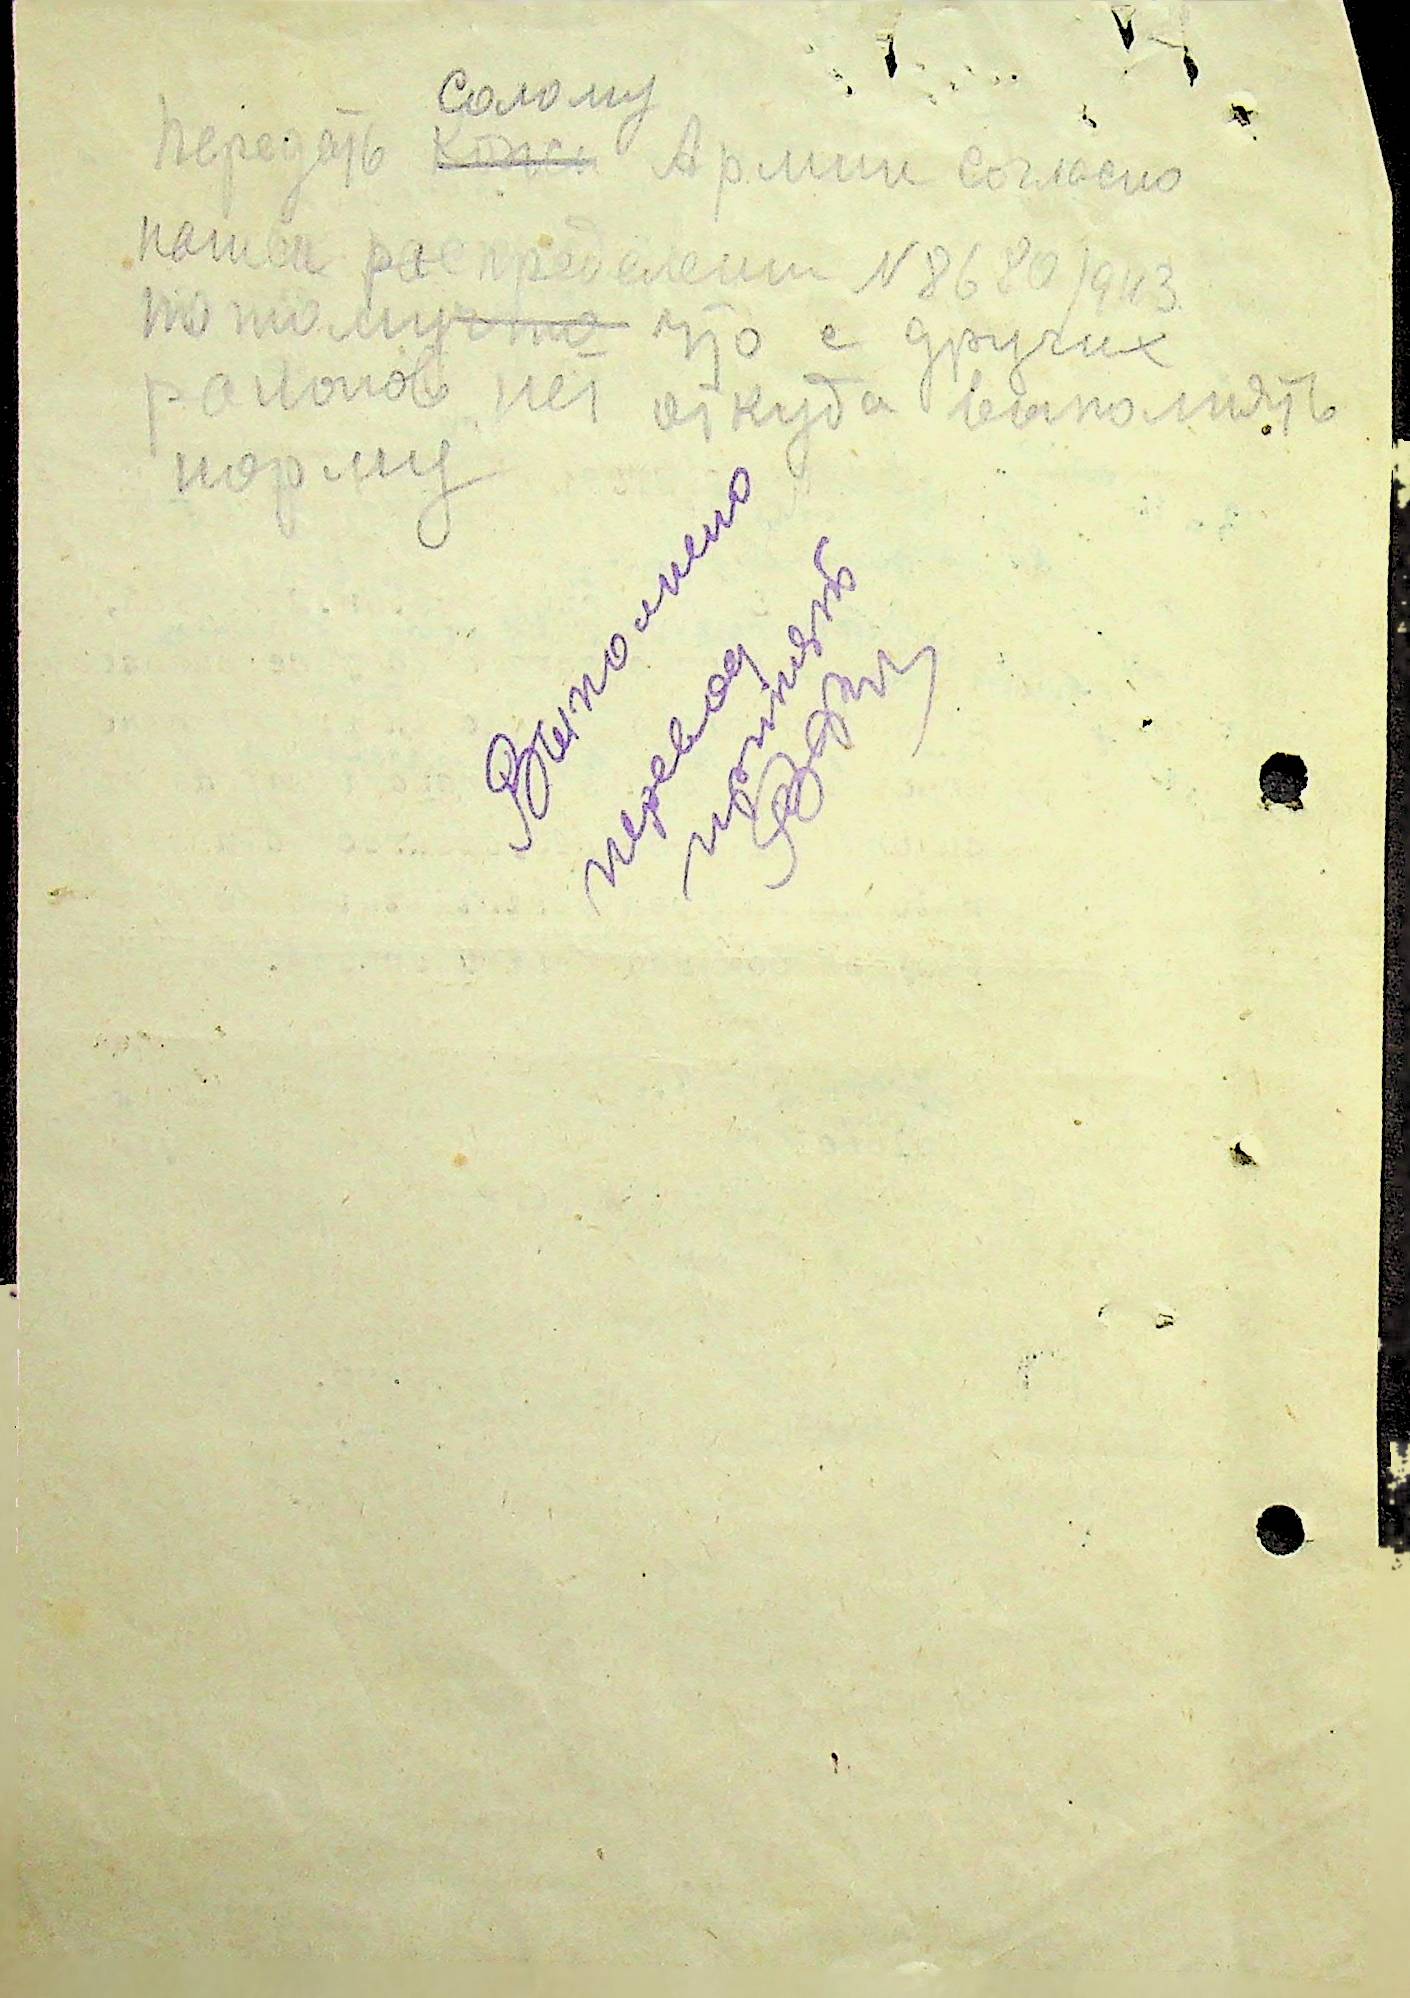 солому
Передать Армии согласно
нашей распределении N 8680/943
потому что с других
районов нет откуда выполнять
норму
Выполнено
перевод